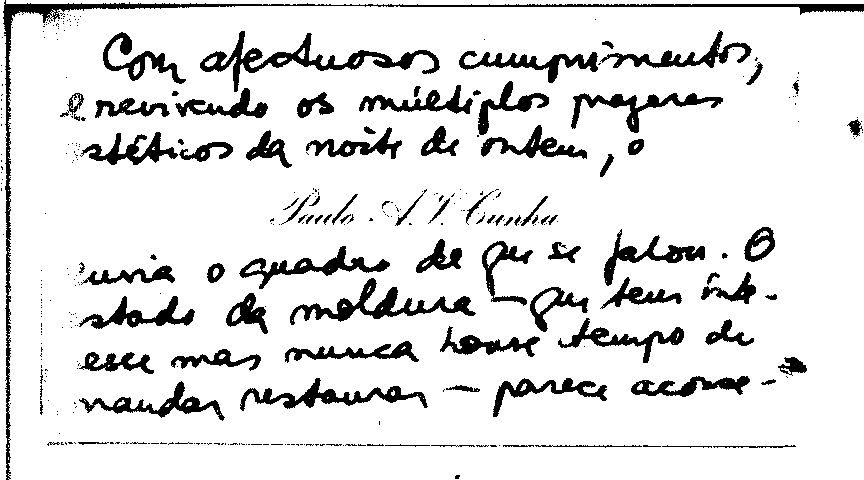 Com afectuosos cumprimentos,
e revivendo os múltiplos prazeres
estéticos da noite de ontem, o
Paulo A. V. Cunha
envia o quadro de que se falou. O
estado da moldura — que tem inte-
esse mas nunca houve tempo de
mandar restaurar — parece aconse-